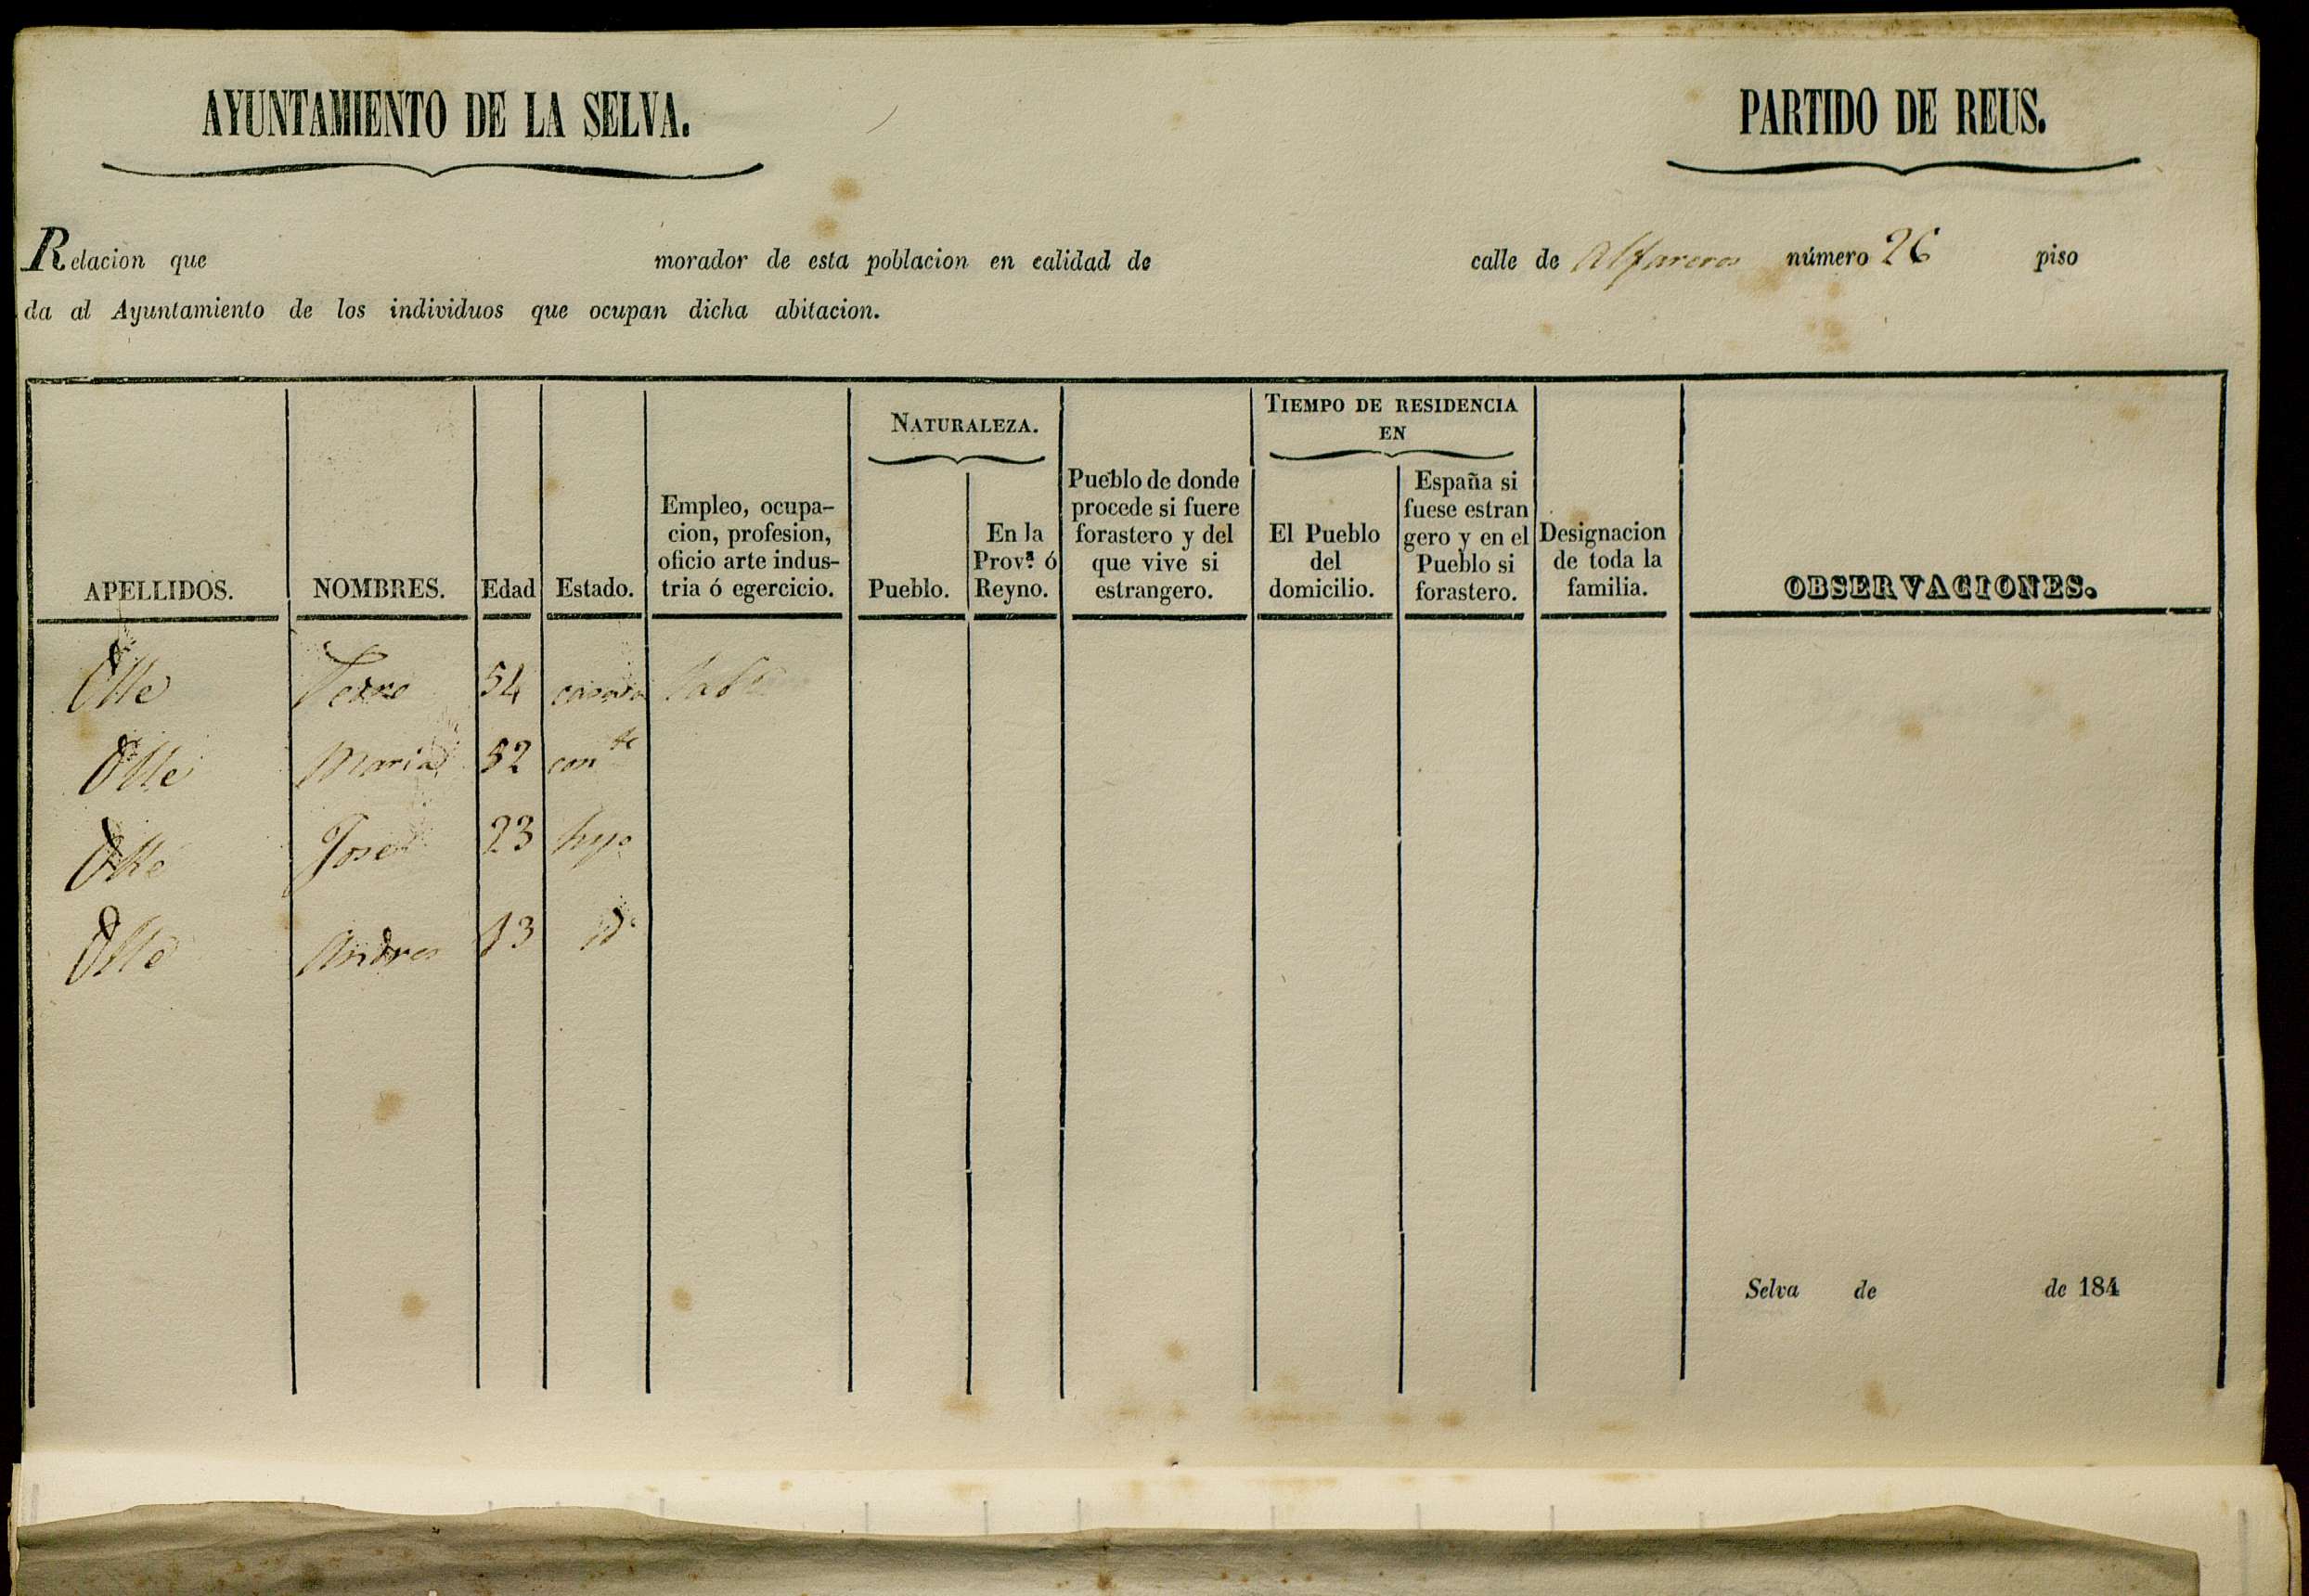 AYUNTAMIENTO DE LA SELVA. PARTIDO DE REUS.
Relacion que morador de esta poblacion en calidad de calle de Alfareros número 26 piso
da al Ayuntamiento de los individuos que ocupan dicha abitacion.
APELLIDOS. NOMBRES. Edad Estado. Empleo, ocupa-
cion, profesion,
oficio arte indus-
tria ó egercicio.
NATURALEZA.
Pueblo. En la
Prov.ª ó
Reyno.
Pueblo de donde
procede si fuere
forastero y del
que vive si
estrangero.
TIEMPO DE RESIDENCIA
EN
El Pueblo
del
domicilio.
España si
fuese estran
gero y en el
Pueblo si
forastero.
Designacion
de toda la
familia.
OBSERVACIONES.
Olle 54 casado
Olle Maria 52 con
Olle Jose 23 hijo
Olle Andres 13 id.
Selva de de 184